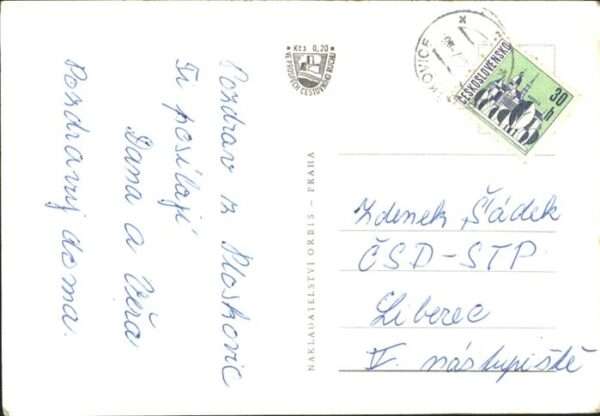 Pozdrav z Ploskovic
Ti posílají
Dana a Věra
Pozdravuj doma.
Kčs 0,20
VE PROSPĚCH CESTOVNÍHO RUCHU
NAKLADATELSTVÍ ORBIS – PRAHA
KOVICE
ČESKOSLOVENSKO
30 h
Zdenek Šádek
ČSD-STP
Liberec
V. nástupiště